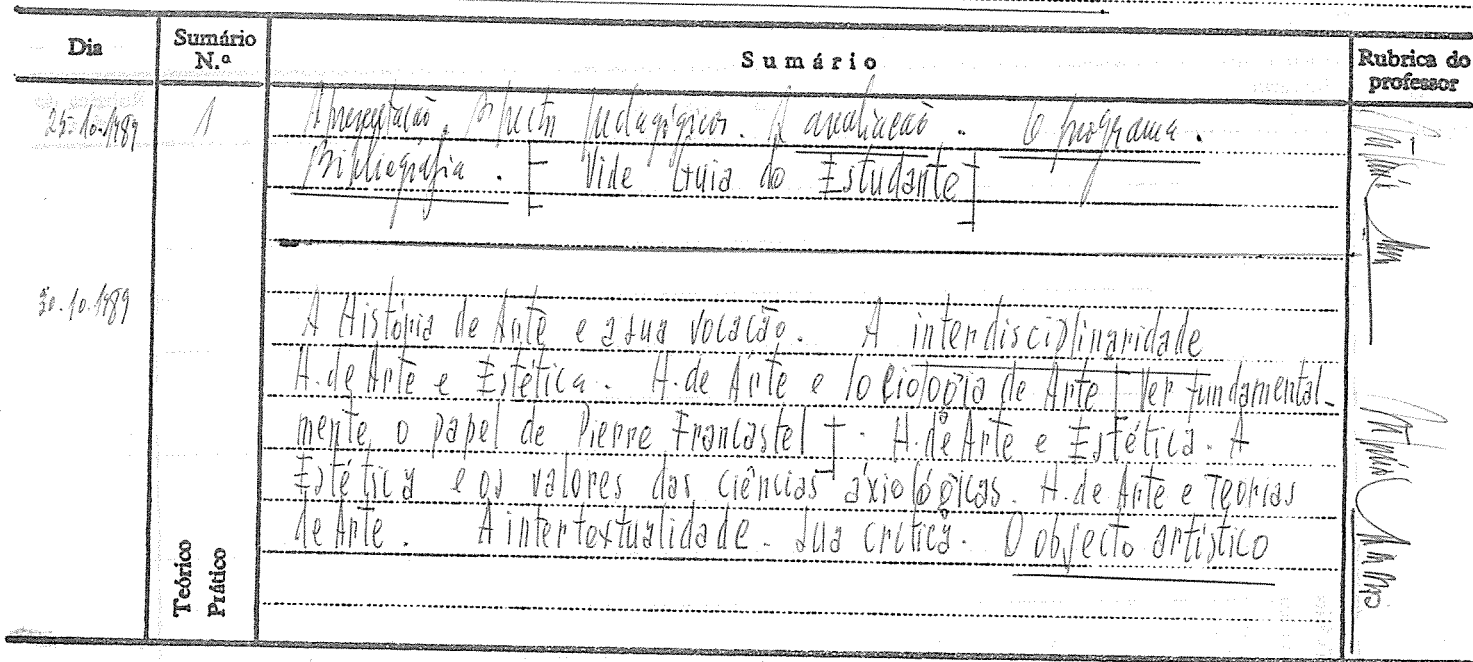 Dia Sumário N.º Sumário Rubrica do professor
25-10-1989 1 Apresentação. Aspectos pedagógicos. A avaliação. O programa.
Bibliografia. [Vide Guia do Estudante]
30.10.1989
A História de Arte e a sua vocação. A interdisciplinaridade
H. de Arte e Estética. H. de Arte e Sociologia de Arte [Ver fundamental-
mente o papel de Pierre Francastel]. H. de Arte e Estética. A
Estética e os valores das ciências axiológicas. H. de Arte e Teorias
de Arte. A intertextualidade. Sua crítica. O objecto artístico
Teórico
Prático